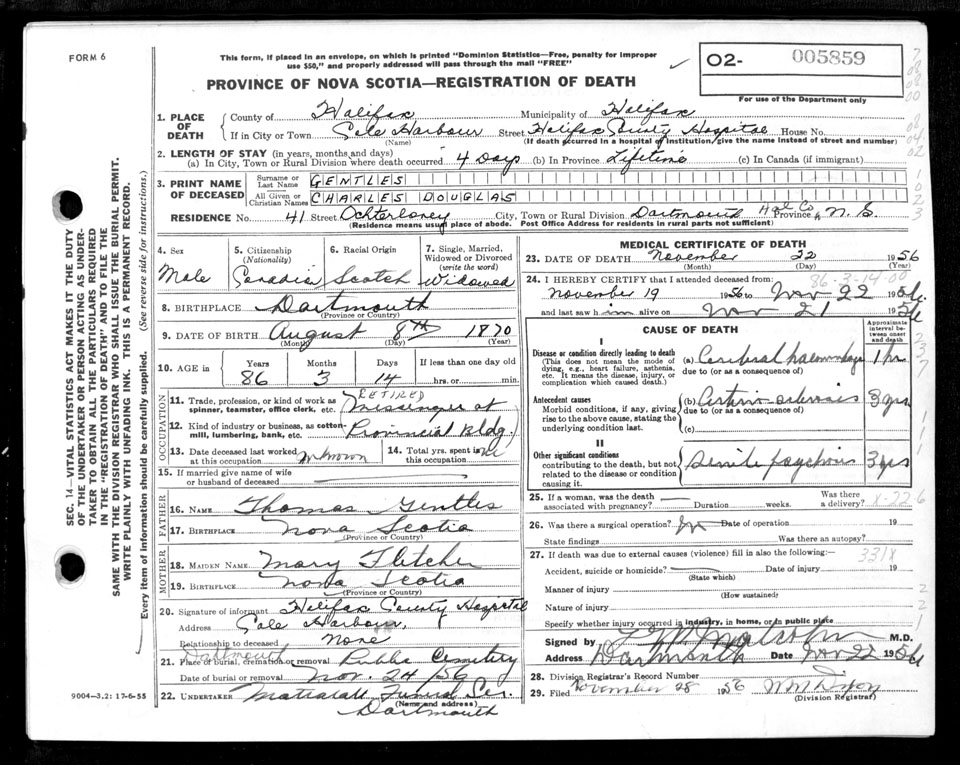 FORM 6
This form, if placed in an envelope, on which is printed "Dominion Statistics—Free, penalty for improper
use $50," and properly addressed will pass through the mail "FREE"
PROVINCE OF NOVA SCOTIA—REGISTRATION OF DEATH
O2- 005859
For use of the Department only
1. PLACE OF DEATH
County of Halifax Municipality of Halifax
If in City or Town Cole Harbour Street Halifax County Hospital House No.
(Name) (If death occurred in a hospital or institution, give the name instead of street and number)
2. LENGTH OF STAY (in years, months and days)
(a) In City, Town or Rural Division where death occurred 4 Days (b) In Province Lifetime (c) In Canada (if immigrant)
3. PRINT NAME OF DECEASED
Surname or Last Name GENTLES
All Given or Christian Names CHARLES DOUGLAS
RESIDENCE No. 41 Street Ochterloney City, Town or Rural Division Dartmouth Hal Co Province N. S.
(Residence means usual place of abode. Post Office Address for residents in rural parts not sufficient)
4. Sex Male
5. Citizenship (Nationality) Canadian
6. Racial Origin Scotch
7. Single, Married, Widowed or Divorced (write the word) Widowed
8. BIRTHPLACE Dartmouth
(Province or Country)
9. DATE OF BIRTH August 8th 1870
(Month) (Day) (Year)
10. AGE in Years Months Days If less than one day old
86 3 14 hrs. or min.
OCCUPATION
11. Trade, profession, or kind of work as spinner, teamster, office clerk, etc. RETIRED Messenger at
12. Kind of industry or business, as cotton-mill, lumbering, bank, etc. Provincial Bldg.
13. Date deceased last worked at this occupation Unknown 14. Total yrs. spent in this occupation
15. If married give name of wife or husband of deceased
FATHER
16. NAME Thomas Gentles
17. BIRTHPLACE Nova Scotia
(Province or Country)
MOTHER
18. MAIDEN NAME Mary Fletcher
19. BIRTHPLACE Nova Scotia
(Province or Country)
20. Signature of informant Halifax County Hospital
Address Cole Harbour,
Relationship to deceased None
21. Place of burial, cremation or removal Dartmouth Public Cemetery
Date of burial or removal Nov. 24/56
22. UNDERTAKER Mattatall Funeral Ser.
(Name and address)
Dartmouth
9004—3,2: 17-6-55
MEDICAL CERTIFICATE OF DEATH
23. DATE OF DEATH November 22 1956
(Month) (Day) (Year)
86-3-14-00
24. I HEREBY CERTIFY that I attended deceased from:
November 19 1956 to Nov 22 1956
and last saw him alive on Nov 21 1956
CAUSE OF DEATH
Approximate interval between onset and death
I
Disease or condition directly leading to death (a) Cerebral haemorrhage 1 hr
(This does not mean the mode of dying, e.g., heart failure, asthenia, etc. It means the disease, injury, or complication which caused death.)
due to (or as a consequence of)
Antecedent causes (b) 3 yrs
Morbid conditions, if any, giving rise to the above cause, stating the underlying condition last.
due to (or as a consequence of)
(c)
II
Other significant conditions Senile psychosis 3 yrs
contributing to the death, but not related to the disease or condition causing it.
25. If a woman, was the death associated with pregnancy? Duration weeks. Was there a delivery?
26. Was there a surgical operation? No Date of operation 19
State findings Was there an autopsy?
27. If death was due to external causes (violence) fill in also the following: 331X
Accident, suicide or homicide? Date of injury 19
(State which)
Manner of injury
(How sustained)
Nature of injury
Specify whether injury occurred in industry, in home, or in public place
Signed by M.D.
Address Dartmouth Date Nov 22 1956
28. Division Registrar's Record Number
29. Filed November 28 1956
(Division Registrar)
SEC. 14—VITAL STATISTICS ACT MAKES IT THE DUTY
OF THE UNDERTAKER OR PERSON ACTING AS UNDER-
TAKER TO OBTAIN ALL THE PARTICULARS REQUIRED
IN THE "REGISTRATION OF DEATH" AND TO FILE THE
SAME WITH THE DIVISION REGISTRAR WHO SHALL ISSUE THE BURIAL PERMIT.
WRITE PLAINLY WITH UNFADING INK. THIS IS A PERMANENT RECORD.
Every item of information should be carefully supplied. (See reverse side for instructions.)